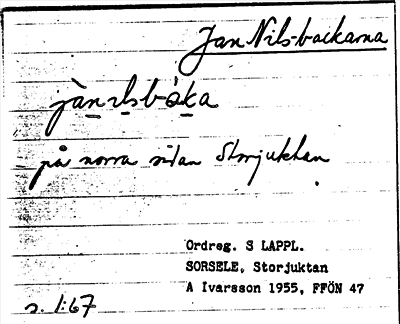 Jan Nils-backarna
jàn ɩlsbàka
på norra sidan Storjuktan
Ordreg. S LAPPL.
SORSELE, Storjuktan
A Ivarsson 1955, FFÖN 47
s. 1:67